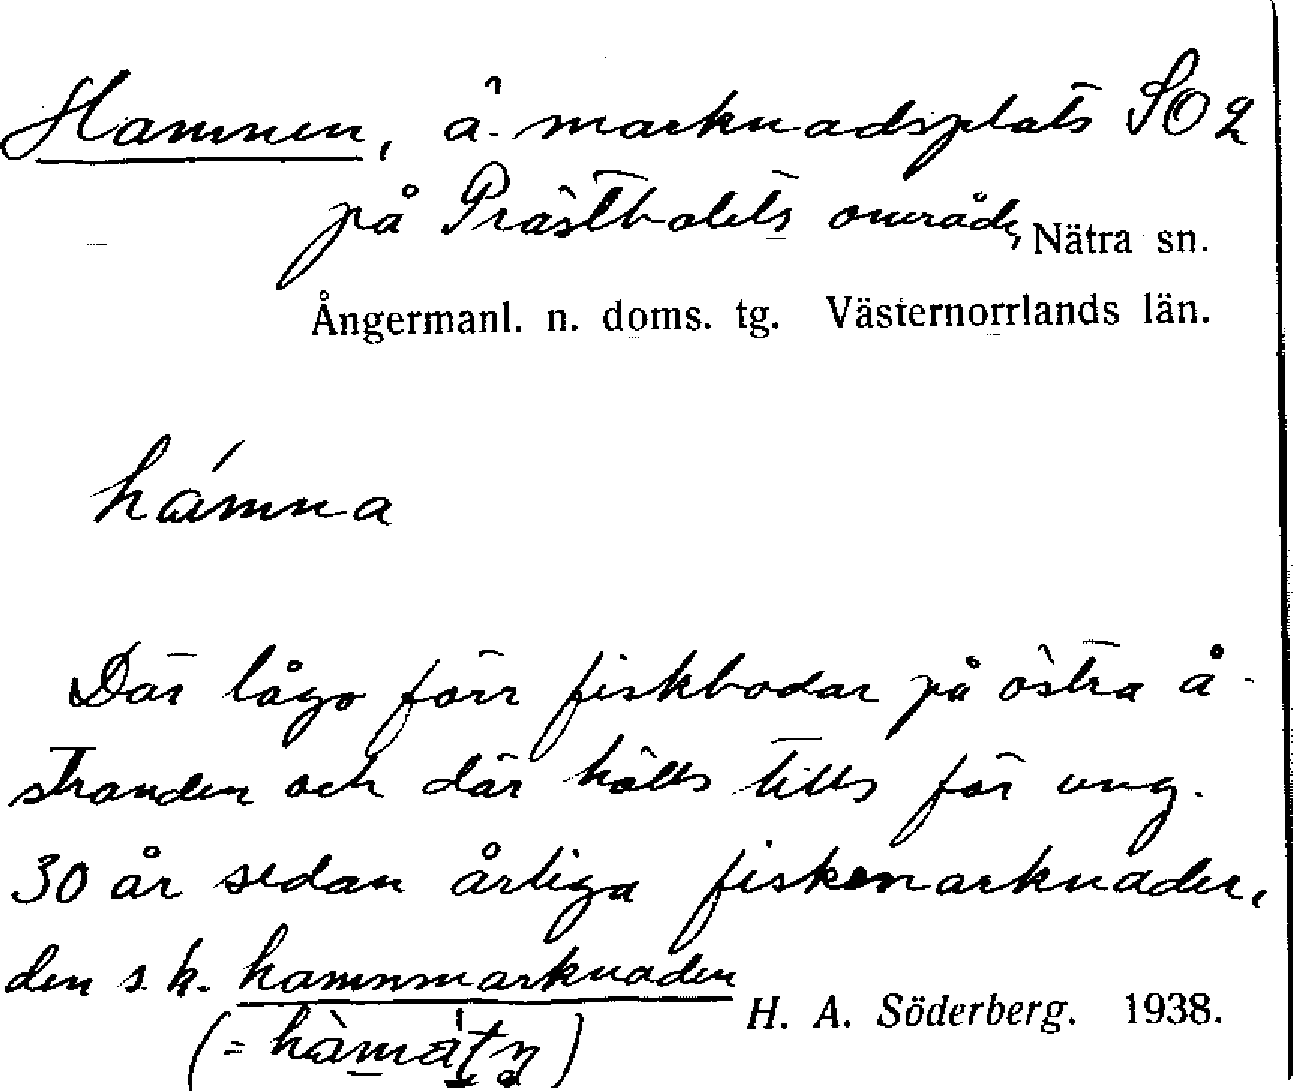 Hamnen, å. marknadsplats SO 2
på Prästbolets område, Nätra sn.
Ångermanl. n. doms. tg. Västernorrlands län.
hámna
Där lågo förr fiskbodar på östra å-
stranden och där hölls tills för ung.
30 år sedan årliga fiskmarknader,
den s.k. hamnmarknaden
H. A. Söderberg. 1938.